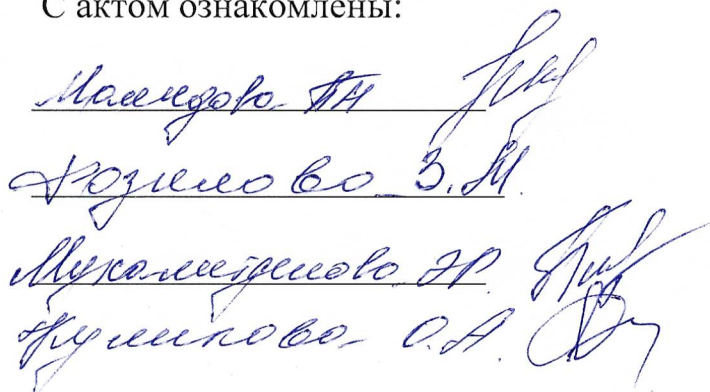 С актом ознакомлены:
Мамедова ТН
Фозилова З.М.
Мухаметдинова ЭР.
Куликова О.А.